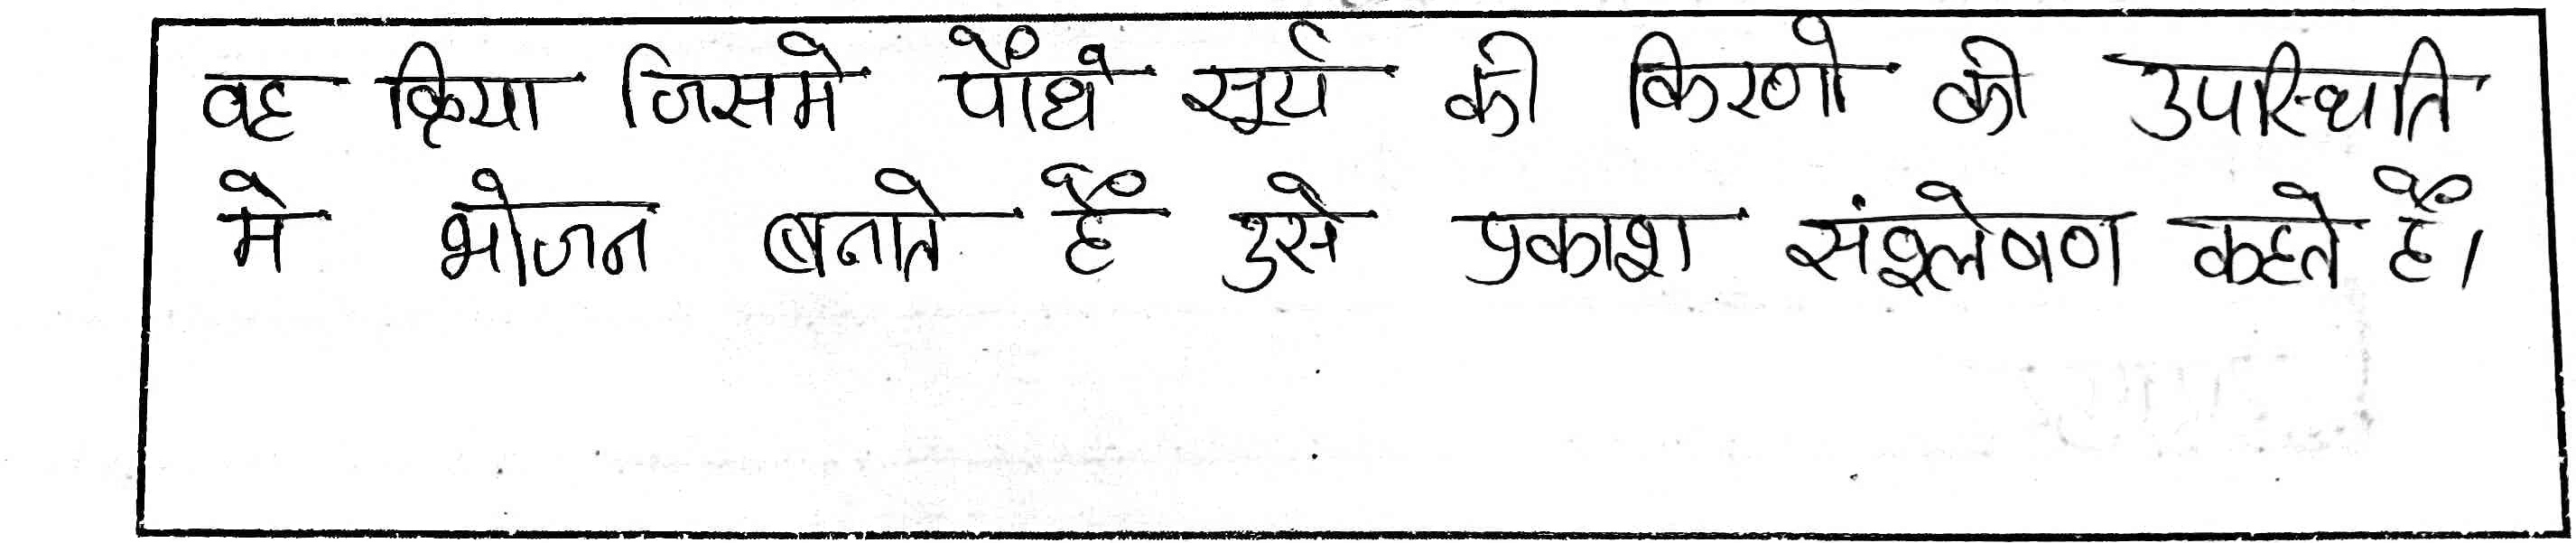 वह क्रिया जिसमे पौंधे सूर्य की किरणो की उपस्थिति
मे भोजन बनाते हैं उसे प्रकाश संश्लेषण कहते हैं।